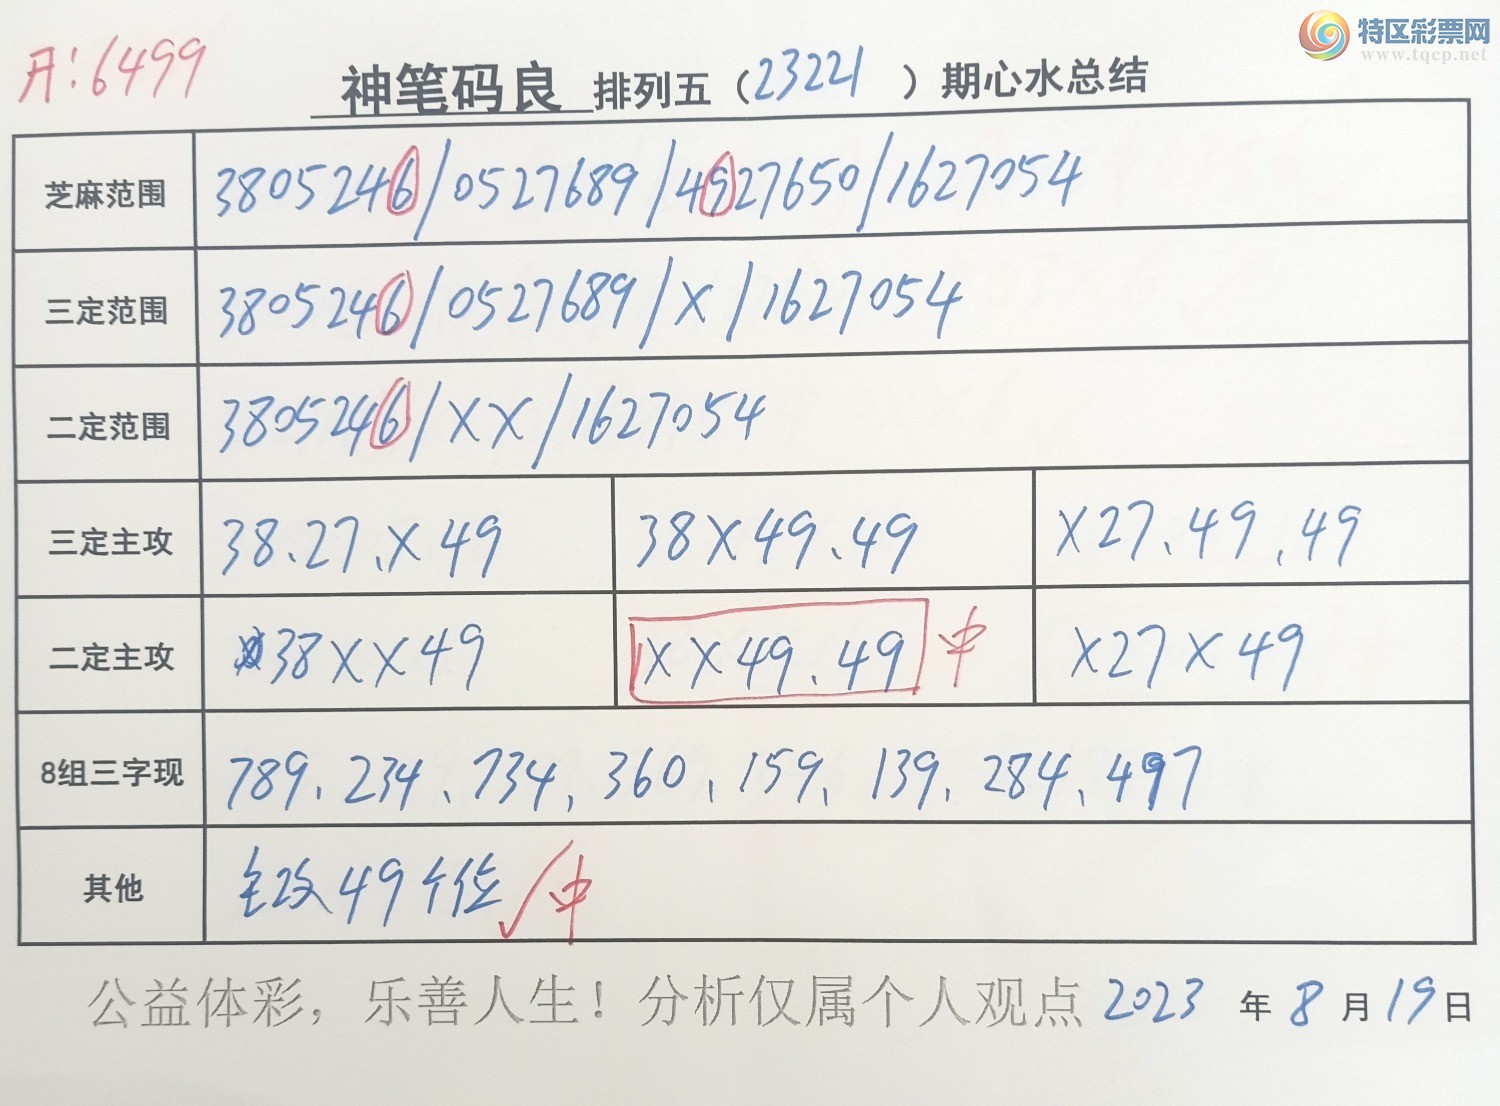 特区彩票网
www.tqcp.net
开:6499
神笔码良 排列五(23221)期心水总结
芝麻范围 38052446/0527689/4927650/1627054
三定范围 3805246/0527689/X/1627054
二定范围 3805246/XX/1627054
三定主攻 38、27、X49 38X49、49 X27、49、49
二定主攻 38XX49 XX49、49 中 X27X49
8组三字现 789、234、734、360、159、139、284、497
其他 主攻49个位√中
公益体彩,乐善人生!分析仅属个人观点 2023年8月19日